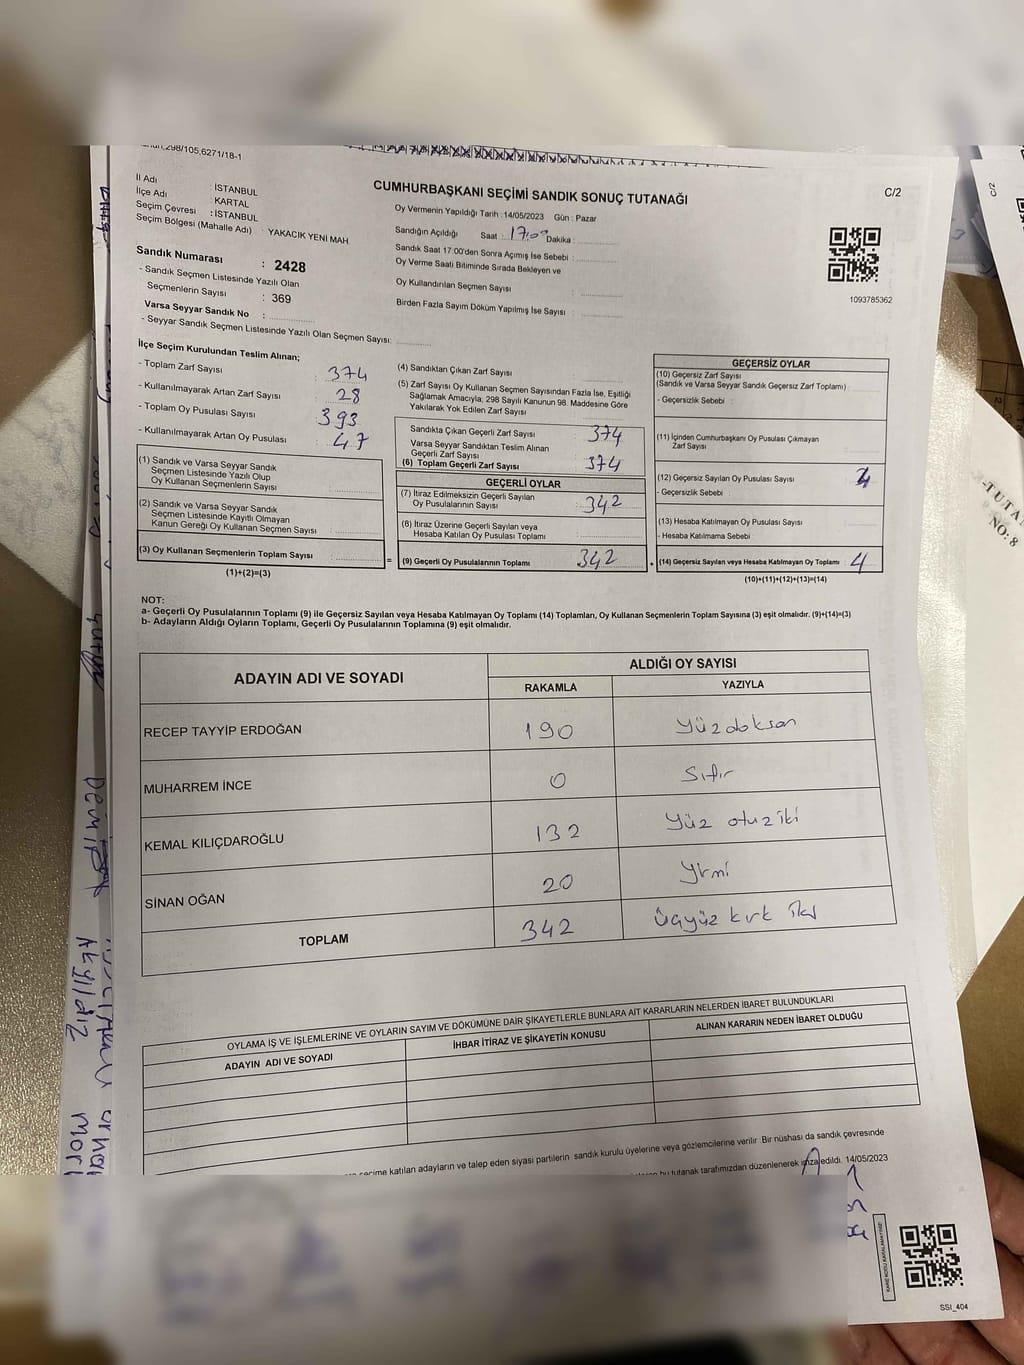 298/105,6271/18-1
C/2
CUMHURBAŞKANI SEÇİMİ SANDIK SONUÇ TUTANAĞI
İl Adı : İSTANBUL
İlçe Adı : KARTAL
Seçim Çevresi : İSTANBUL
Seçim Bölgesi (Mahalle Adı) : YAKACIK YENİ MAH.
Sandık Numarası : 2428
- Sandık Seçmen Listesinde Yazılı Olan
Seçmenlerin Sayısı : 369
Varsa Seyyar Sandık No :
- Seyyar Sandık Seçmen Listesinde Yazılı Olan Seçmen Sayısı:
Oy Vermenin Yapıldığı Tarih : 14/05/2023 Gün : Pazar
Sandığın Açıldığı Saat : 17:00 Dakika :
Sandık Saat 17:00'den Sonra Açımış İse Sebebi :
Oy Verme Saati Bitiminde Sırada Bekleyen ve
Oy Kullandırılan Seçmen Sayısı :
Birden Fazla Sayım Döküm Yapılmış İse Sayısı :
1093785362
İlçe Seçim Kurulundan Teslim Alınan;
- Toplam Zarf Sayısı : 374
- Kullanılmayarak Artan Zarf Sayısı : 28
- Toplam Oy Pusulası Sayısı : 393
- Kullanılmayarak Artan Oy Pusulası : 47
(1) Sandık ve Varsa Seyyar Sandık
Seçmen Listesinde Yazılı Olup
Oy Kullanan Seçmenlerin Sayısı :
(2) Sandık ve Varsa Seyyar Sandık
Seçmen Listesinde Kayıtlı Olmayan
Kanun Gereği Oy Kullanan Seçmen Sayısı :
(3) Oy Kullanan Seçmenlerin Toplam Sayısı :
(1)+(2)=(3)
(4) Sandıktan Çıkan Zarf Sayısı :
(5) Zarf Sayısı Oy Kullanan Seçmen Sayısından Fazla İse, Eşitliği
Sağlamak Amacıyla, 298 Sayılı Kanunun 98. Maddesine Göre
Yakılarak Yok Edilen Zarf Sayısı :
Sandıkta Çıkan Geçerli Zarf Sayısı : 374
Varsa Seyyar Sandıktan Teslim Alınan
Geçerli Zarf Sayısı :
(6) Toplam Geçerli Zarf Sayısı : 374
GEÇERLİ OYLAR
(7) İtiraz Edilmeksizin Geçerli Sayılan
Oy Pusulalarının Sayısı : 342
(8) İtiraz Üzerine Geçerli Sayılan veya
Hesaba Katılan Oy Pusulası Toplamı :
(9) Geçerli Oy Pusulalarının Toplamı : 342
GEÇERSİZ OYLAR
(10) Geçersiz Zarf Sayısı
(Sandık ve Varsa Seyyar Sandık Geçersiz Zarf Toplamı) :
- Geçersizlik Sebebi :
(11) İçinden Cumhurbaşkanı Oy Pusulası Çıkmayan
Zarf Sayısı :
(12) Geçersiz Sayılan Oy Pusulası Sayısı : 4
- Geçersizlik Sebebi :
(13) Hesaba Katılmayan Oy Pusulası Sayısı :
- Hesaba Katılmama Sebebi :
(14) Geçersiz Sayılan veya Hesaba Katılmayan Oy Toplamı : 4
(10)+(11)+(12)+(13)=(14)
NOT:
a- Geçerli Oy Pusulalarının Toplamı (9) ile Geçersiz Sayılan veya Hesaba Katılmayan Oy Toplamı (14) Toplamları, Oy Kullanan Seçmenlerin Toplam Sayısına (3) eşit olmalıdır. (9)+(14)=(3)
b- Adayların Aldığı Oyların Toplamı, Geçerli Oy Pusulalarının Toplamına (9) eşit olmalıdır.
ADAYIN ADI VE SOYADI ALDIĞI OY SAYISI
RAKAMLA YAZIYLA
RECEP TAYYİP ERDOĞAN 190 Yüzdoksan
MUHARREM İNCE 0 Sıfır
KEMAL KILIÇDAROĞLU 132 Yüz otuziki
SİNAN OĞAN 20 Yirmi
TOPLAM 342 üçyüz kırk iki
OYLAMA İŞ VE İŞLEMLERİNE VE OYLARIN SAYIM VE DÖKÜMÜNE DAİR ŞİKAYETLERLE BUNLARA AİT KARARLARIN NELERDEN İBARET BULUNDUKLARI
ADAYIN ADI VE SOYADI İHBAR İTİRAZ VE ŞİKAYETİN KONUSU ALINAN KARARIN NEDEN İBARET OLDUĞU
seçime katılan adayların ve talep eden siyasi partilerin sandık kurulu üyelerine veya gözlemcilerine verilir. Bir nüshası da sandık çevresinde
bu tutanak tarafımızdan düzenlenerek imza edildi. 14/05/2023
SSI_404
C/2
-TUTA
NO: 8
Akyıldız